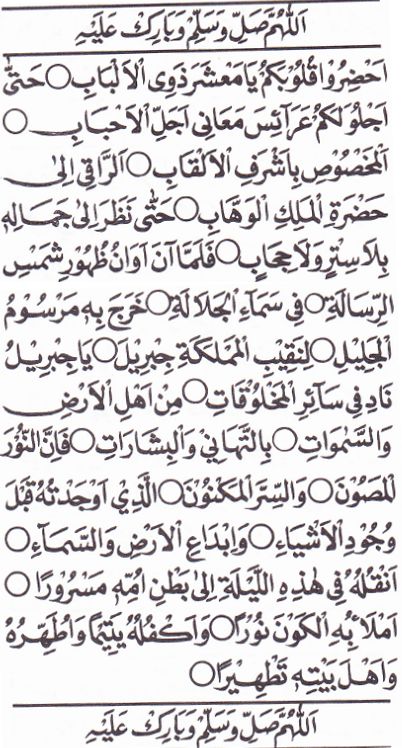 اَللّٰهُمَّ صَلِّ وَسَلِّمْ وَبَارِكْ عَلَيْهِ
اَحْضِرُوْا قُلُوْبَكُمْ يَا مَعْشَرَ ذَوِى الْاَلْبَابِ ○ حَتّٰى
اَجْلُوَ لَكُمْ عَرَآئِسَ مَعَانِى اَجَلِّ الْاَحْبَابِ ○
اَلْمَخْصُوْصِ بِاَشْرَفِ الْاَلْقَابِ ○ اَلرَّاقِى اِلٰى
حَضْرَةِ الْمَلِكِ الْوَهَّابِ ○ حَتّٰى نَظَرَ اِلٰى جَمَالِهِ
بِلَا سِتْرٍ وَلَا حِجَابٍ ○ فَلَمَّا آنَ اَوَانُ ظُهُوْرِ شَمْسِ
الرِّسَالَةِ ○ فِى سَمَآءِ الْجَلَالَةِ ○ خَرَجَ بِهِ مَرْسُوْمُ
الْجَلِيْلِ ○ لِنَقِيْبِ الْمَمْلَكَةِ جِبْرِيْلَ ○ يَا جِبْرِيْلُ
نَادِ فِى سَآئِرِ الْمَخْلُوْقَاتِ ○ مِنْ اَهْلِ الْاَرْضِ
وَالسَّمٰوَاتِ ○ بِالتَّهَانِى وَالْبِشَارَاتِ ○ فَاِنَّ النُّوْرَ
الْمَصُوْنَ ○ وَالسِّرَّ الْمَكْنُوْنَ ○ الَّذِيْ اَوْجَدْتُهُ قَبْلَ
وُجُوْدِ الْاَشْيَآءِ ○ وَاِبْدَاعِ الْاَرْضِ وَالسَّمَآءِ ○
اَنْقُلُهُ فِى هٰذِهِ اللَّيْلَةِ اِلٰى بَطْنِ اُمِّهِ مَسْرُوْرًا ○
اَمْلَأُ بِهِ الْكَوْنَ نُوْرًا ○ وَاَكْفُلُهُ يَتِيْمًا وَاُطَهِّرُهُ
وَاَهْلَ بَيْتِهِ تَطْهِيْرًا ○
اَللّٰهُمَّ صَلِّ وَسَلِّمْ وَبَارِكْ عَلَيْهِ